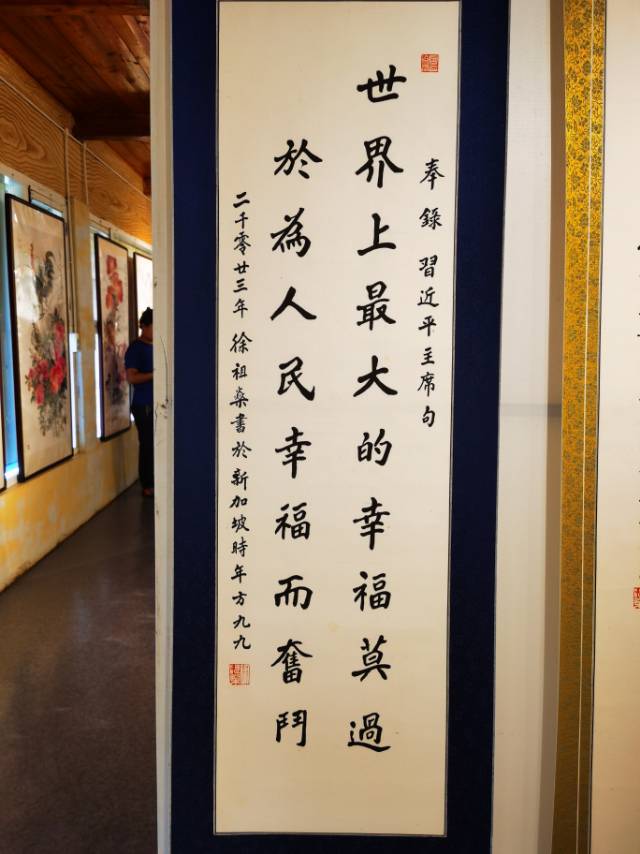 奉錄 習近平主席句
世界上最大的幸福莫過
於為人民幸福而奮鬥
二千零廿三年 徐祖燊書於新加坡時年方九九